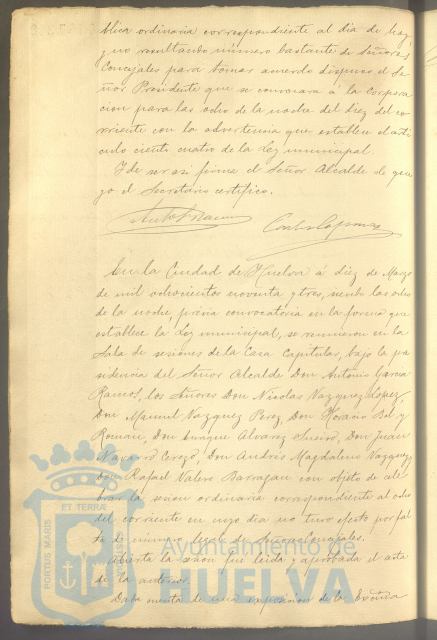 blica ordinaria correspondiente al dia de hoy
y no resultando número bastante de Señores
Concejales para tomar acuerdo dispuso el Se-
ñor Presidente que se convocara á la Corpora
cion para las ocho de la noche del diez del co-
rriente con la advertencia que establece el artí
culo ciento cuatro de la Ley municipal.
Y de ser asi firma el Señor Alcalde de que
yo el Secretario certifico.
En la Ciudad de Huelva á diez de Marzo
de mil ochocientos noventa y tres, siendo las ocho
de la noche, prévia convocatoria en la forma que
establece la Ley municipal, se reunieron en la
Sala de sesiones de la Casa Capitular, bajo la pre
sidencia del Señor Alcalde Don Antonio Garcia
Ramos, los Señores Don Nicolas Vazquez Lopez,
Don Manuel Vazquez Perez, Don Horacio Bel y
Roman, Don Enrique Alvarez Sueiro, Don Juan
Navarro Cerezo, Don Andrés Magdaleno Vazquez
Don Rafael Valero Barragan con objeto de cele
brar la sesion ordinaria correspondiente al ocho
del corriente en cuyo dia no tuvo efecto por fal
ta de número legal de Señores Concejales.
Abierta la sesion fué leida y aprobada el acta
de la anterior.
Dada cuenta de una exposicion de la
PORTUS MARIS ET TERRÆ
Ayuntamiento de
HUELVA